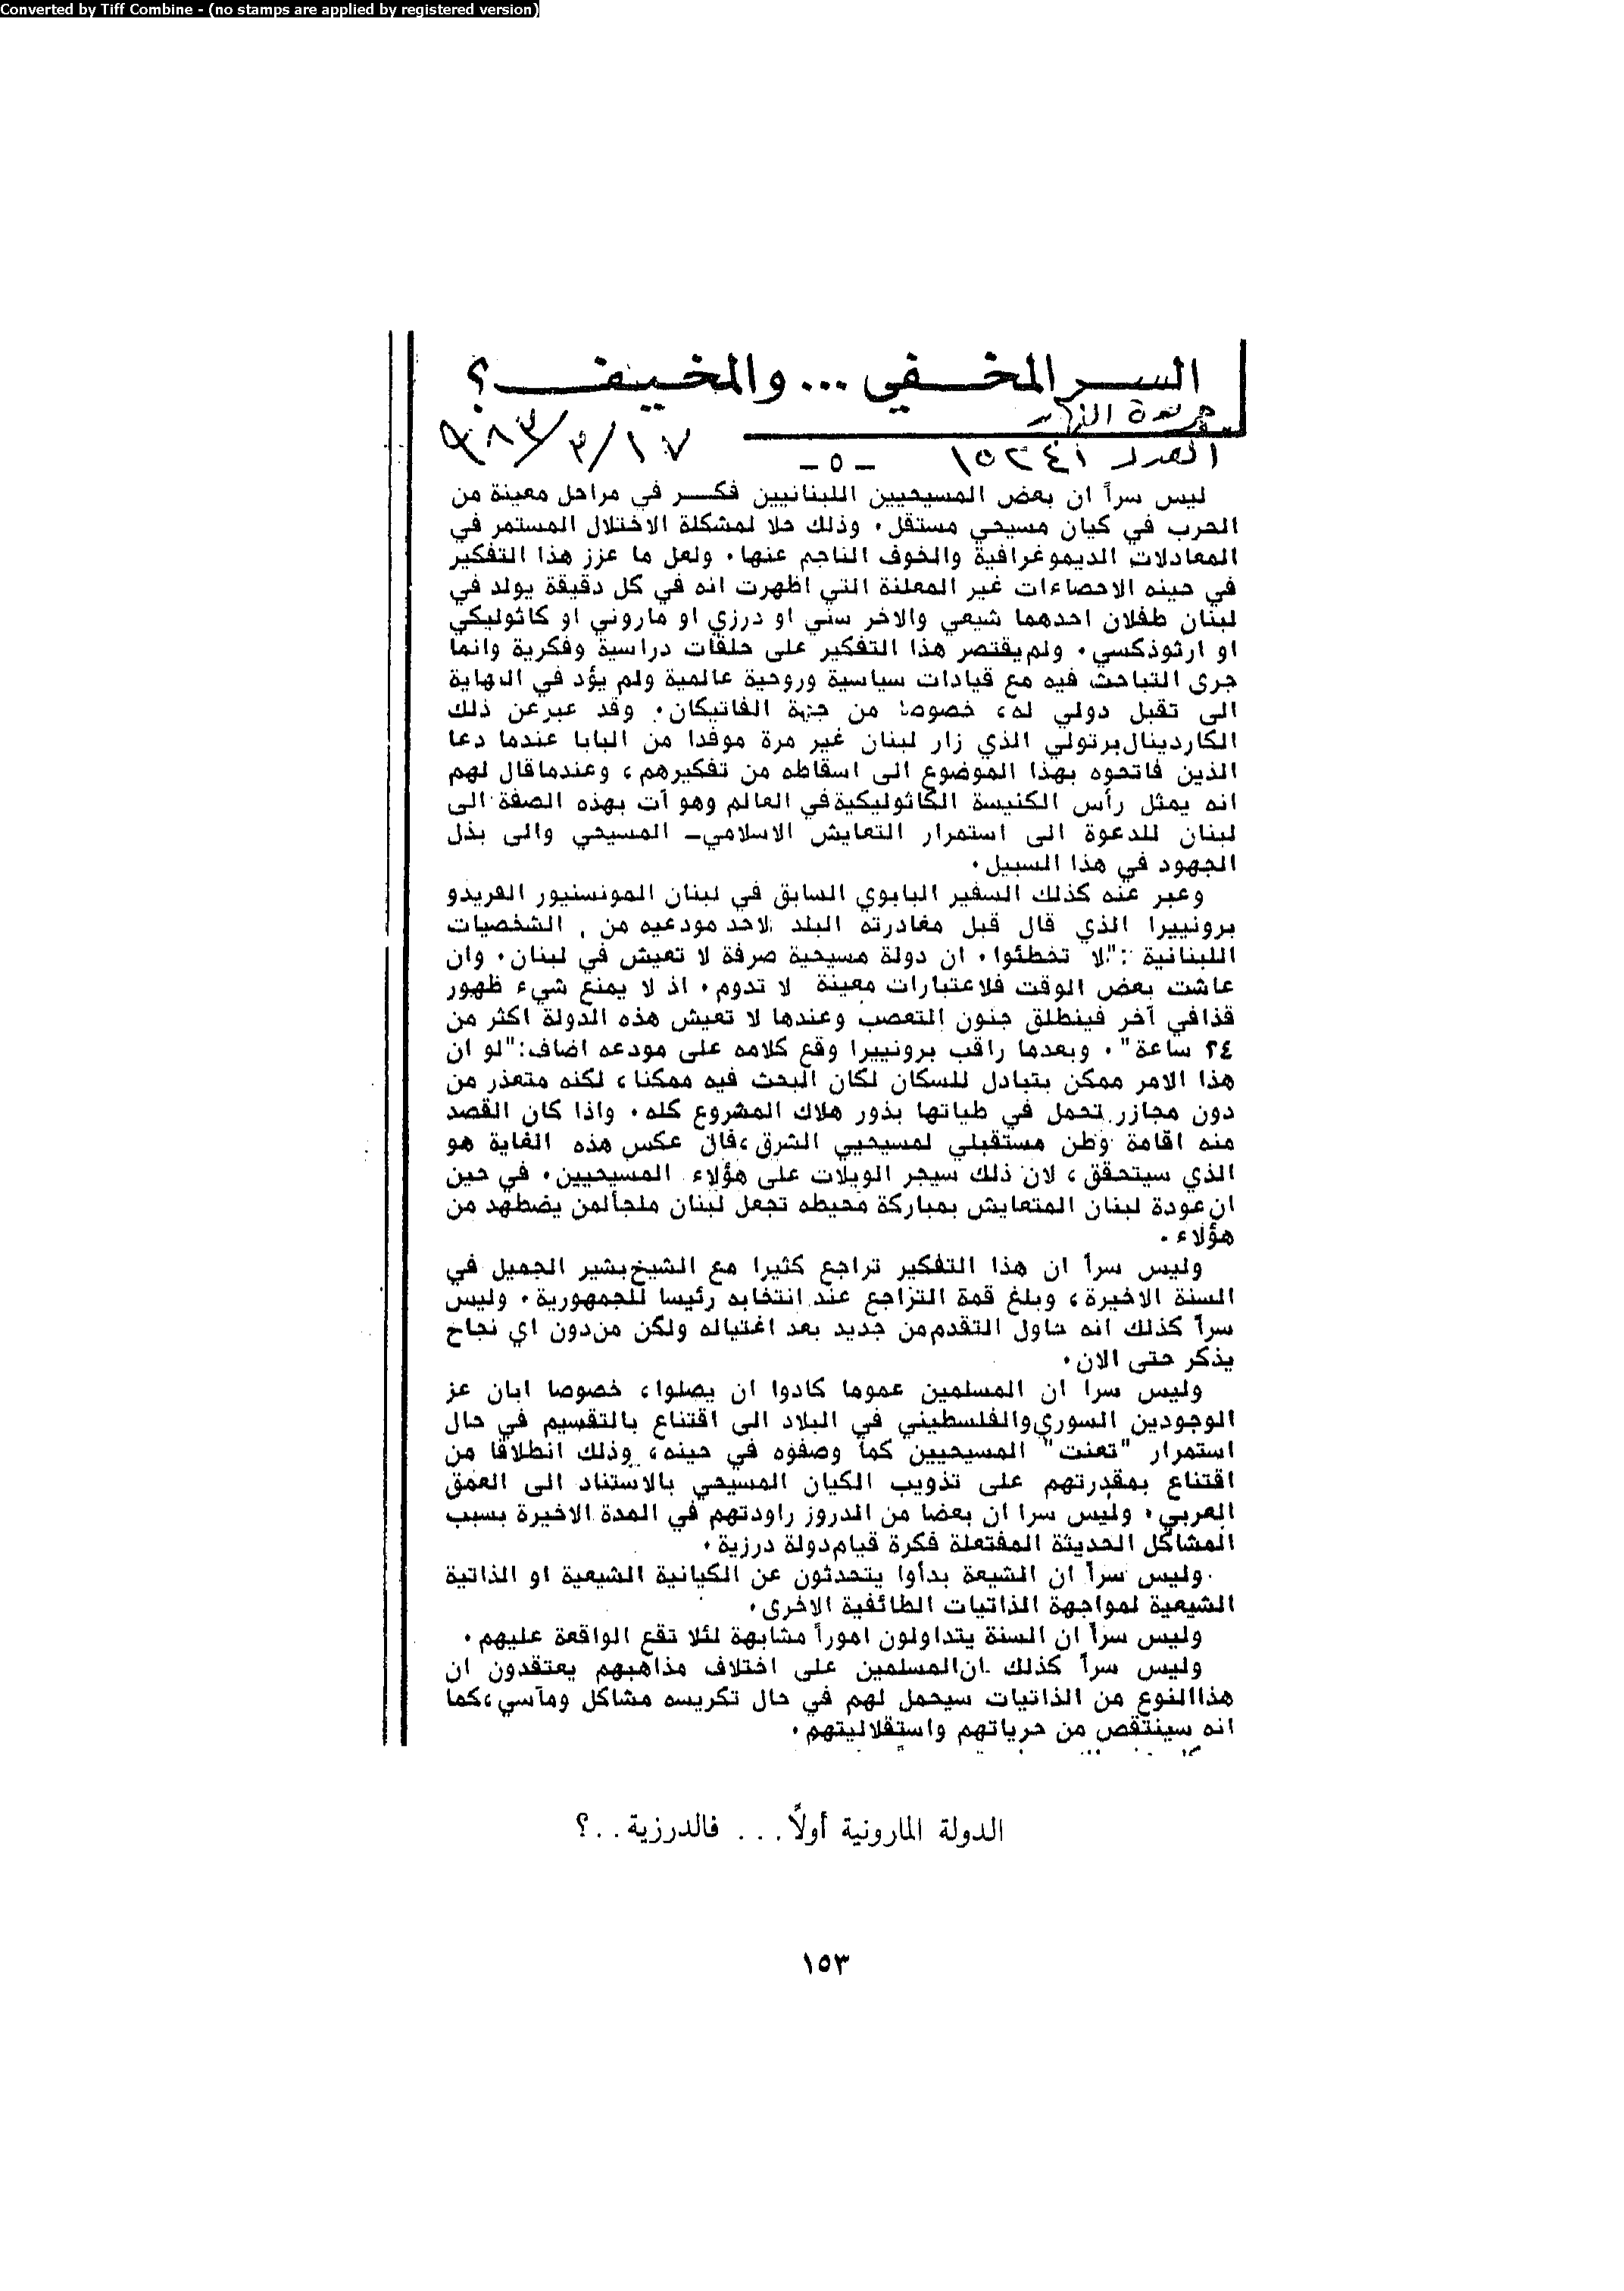 Converted by Tiff Combine - (no stamps are applied by registered version)
السر المخفي ... والمخيف ؟
جريدة النهار
العدد ١٥٢٤١ -٥- ٩٨٣/٣/١٧
ليس سراً ان بعض المسيحيين اللبنانيين فكر في مراحل معينة من
الحرب في كيان مسيحي مستقل. وذلك حلا لمشكلة الاختلال المستمر في
المعادلات الديموغرافية والخوف الناجم عنها. ولعل ما عزز هذا التفكير
في حينه الاحصاءات غير المعلنة التي اظهرت انه في كل دقيقة يولد في
لبنان طفلان احدهما شيعي والاخر سني او درزي او ماروني او كاثوليكي
او ارثوذكسي. ولم يقتصر هذا التفكير على حلقات دراسية وفكرية وانما
جرى التباحث فيه مع قيادات سياسية وروحية عالمية ولم يؤد في النهاية
الى تقبل دولي له، خصوصا من جهة الفاتيكان. وقد عبر عن ذلك
الكاردينال برتولي الذي زار لبنان غير مرة موفدا من البابا عندما دعا
الذين فاتحوه بهذا الموضوع الى اسقاطه من تفكيرهم، وعندما قال لهم
انه يمثل رأس الكنيسة الكاثوليكية في العالم وهو آت بهذه الصفة الى
لبنان للدعوة الى استمرار التعايش الاسلامي - المسيحي والى بذل
الجهود في هذا السبيل.
وعبر عنه كذلك السفير البابوي السابق في لبنان المونسنيور الفريدو
برونييرا الذي قال قبل مغادرته البلد لاحد مودعيه من الشخصيات
اللبنانية :"لا تخطئوا. ان دولة مسيحية صرفة لا تعيش في لبنان. وان
عاشت بعض الوقت فلاعتبارات معينة لا تدوم. اذ لا يمنع شيء ظهور
قذافي آخر فينطلق جنون التعصب وعندها لا تعيش هذه الدولة اكثر من
٢٤ ساعة". وبعدما راقب برونييرا وقع كلامه على مودعه اضاف:"لو ان
هذا الامر ممكن بتبادل للسكان لكان البحث فيه ممكنا، لكنه متعذر من
دون مجازر تحمل في طياتها بذور هلاك المشروع كله. واذا كان القصد
منه اقامة وطن مستقبلي لمسيحيي الشرق، فان عكس هذه الغاية هو
الذي سيتحقق، لان ذلك سيجر الويلات على هؤلاء المسيحيين. في حين
ان عودة لبنان المتعايش بمباركة محيطه تجعل لبنان ملجأ لمن يضطهد من
هؤلاء.
وليس سراً ان هذا التفكير تراجع كثيرا مع الشيخ بشير الجميل في
السنة الاخيرة، وبلغ قمة التراجع عند انتخابه رئيسا للجمهورية. وليس
سراً كذلك انه حاول التقدم من جديد بعد اغتياله ولكن من دون اي نجاح
يذكر حتى الان.
وليس سرا ان المسلمين عموما كادوا ان يصلوا، خصوصا ابان عز
الوجودين السوري والفلسطيني في البلاد الى اقتناع بالتقسيم في حال
استمرار "تعنت" المسيحيين كما وصفوه في حينه، وذلك انطلاقا من
اقتناع بمقدرتهم على تذويب الكيان المسيحي بالاستناد الى العمق
العربي. وليس سرا ان بعضا من الدروز راودتهم في المدة الاخيرة بسبب
المشاكل الحديثة المفتعلة فكرة قيام دولة درزية.
وليس سراً ان الشيعة بدأوا يتحدثون عن الكيانية الشيعية او الذاتية
الشيعية لمواجهة الذاتيات الطائفية الاخرى.
وليس سراً ان السنة يتداولون اموراً مشابهة لئلا تقع الواقعة عليهم.
وليس سراً كذلك ان المسلمين على اختلاف مذاهبهم يعتقدون ان
هذا النوع من الذاتيات سيحمل لهم في حال تكريسه مشاكل ومآسي، كما
انه سينتقص من حرياتهم واستقلاليتهم.
الدولة المارونية أولاً... فالدرزية..؟
١٥٣